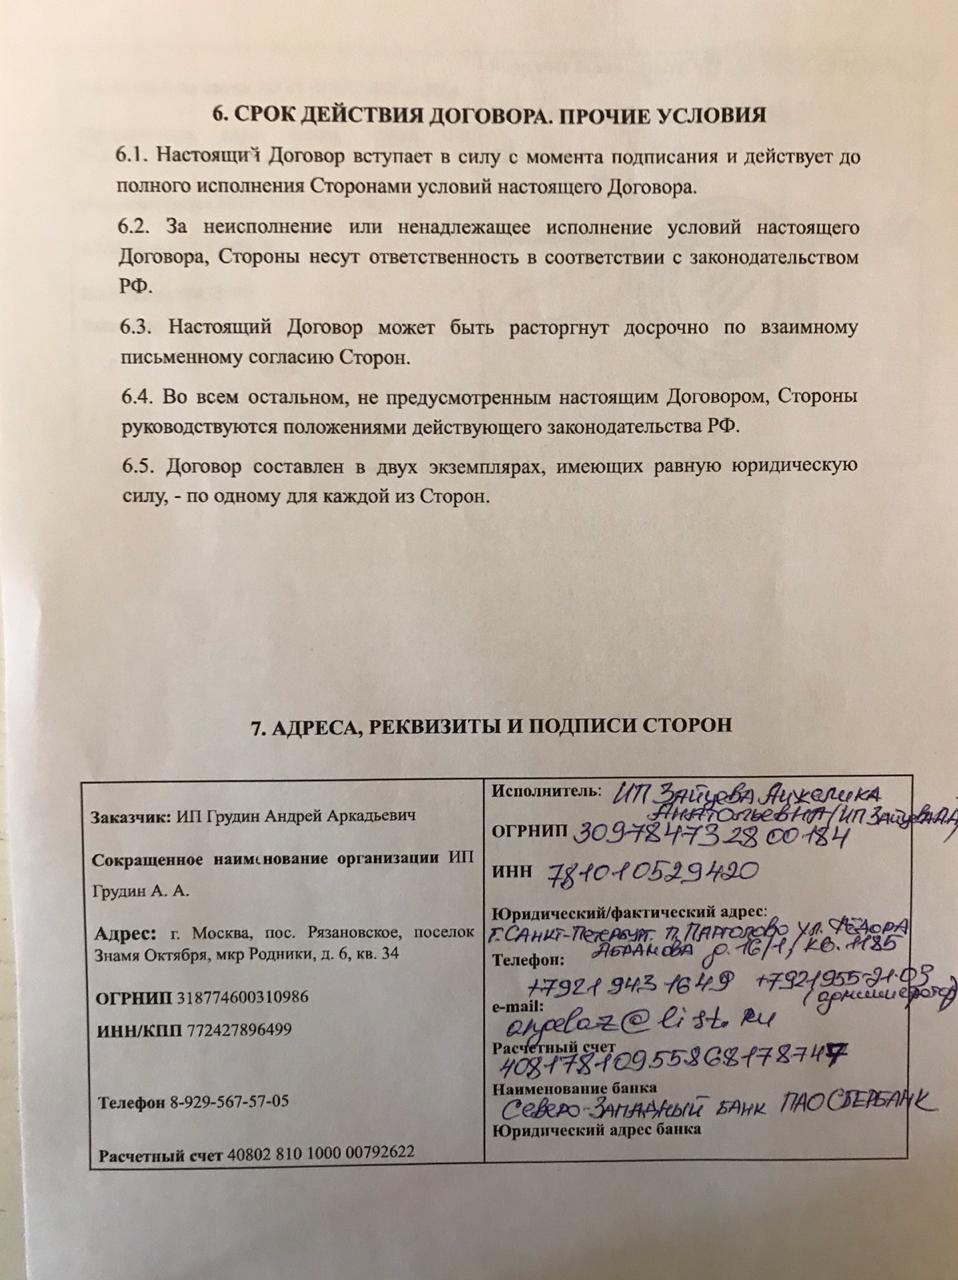 6. СРОК ДЕЙСТВИЯ ДОГОВОРА. ПРОЧИЕ УСЛОВИЯ
6.1. Настоящий Договор вступает в силу с момента подписания и действует до
полного исполнения Сторонами условий настоящего Договора.
6.2. За неисполнение или ненадлежащее исполнение условий настоящего
Договора, Стороны несут ответственность в соответствии с законодательством
РФ.
6.3. Настоящий Договор может быть расторгнут досрочно по взаимному
письменному согласию Сторон.
6.4. Во всем остальном, не предусмотренным настоящим Договором, Стороны
руководствуются положениями действующего законодательства РФ.
6.5. Договор составлен в двух экземплярах, имеющих равную юридическую
силу, - по одному для каждой из Сторон.
7. АДРЕСА, РЕКВИЗИТЫ И ПОДПИСИ СТОРОН
Заказчик: ИП Грудин Андрей Аркадьевич
Сокращенное наименование организации ИП
Грудин А. А.
Адрес: г. Москва, пос. Рязановское, поселок
Знамя Октября, мкр Родники, д. 6, кв. 34
ОГРНИП 318774600310986
ИНН/КПП 772427896499
Телефон 8-929-567-57-05
Расчетный счет 40802 810 1000 00792622
Исполнитель: ИП Зайцева Анжелика
Анатольевна/ИП Зайцева А.А/
ОГРНИП 309784732800184
ИНН 781010529420
Юридический/фактический адрес:
г. Санкт-Петербург. п. Парголово ул. Фёдора
Абрамова д. 16/1, кв. 1185
Телефон:
+7921 943 1649 +7921955-21-03
(администратор)
e-mail:
angelaz@list.ru
Расчетный счет
40817810955868178747
Наименование банка
Северо-Западный банк ПАО Сбербанк
Юридический адрес банка